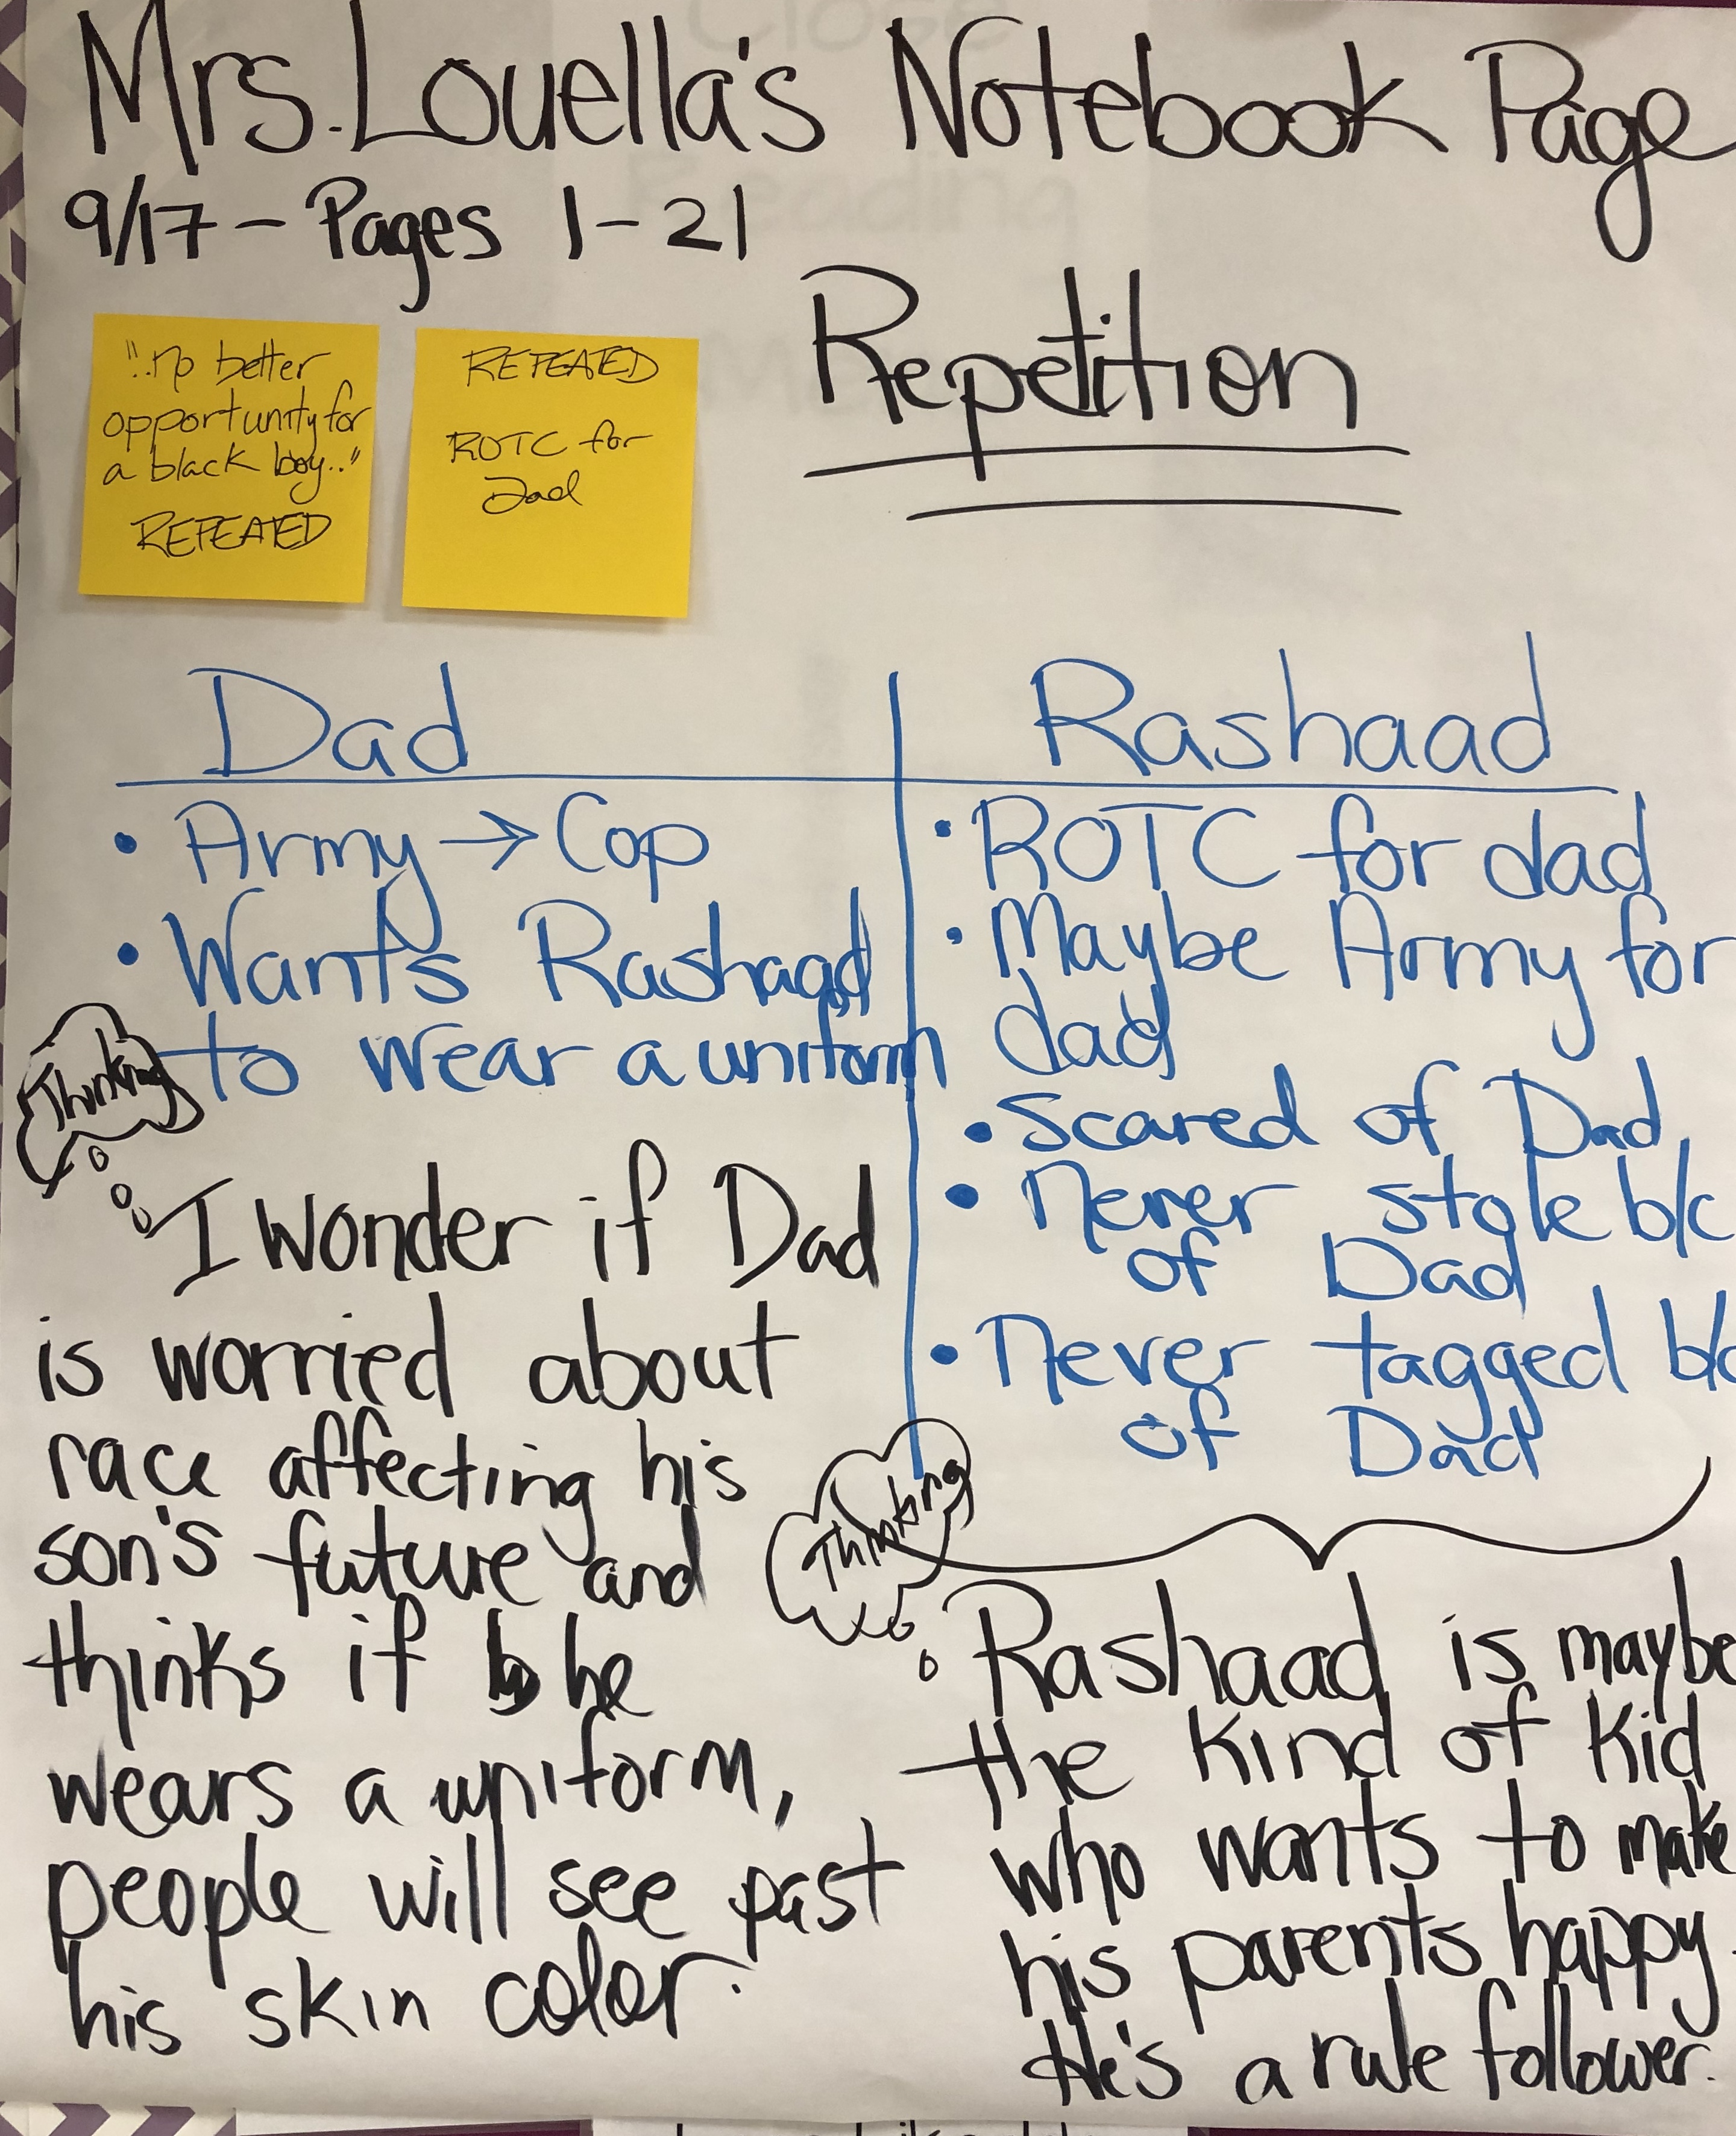 Mrs. Louella's Notebook Page
9/17 - Pages 1-21
Repetition
"..no better
opportunity for
a black boy.."
REPEATED
REPEATED
ROTC for
Dad
Dad
• Army → Cop
• Wants Rashaad
to wear a uniform
Thinking
I wonder if Dad
is worried about
race affecting his
son's future and
thinks if he
wears a uniform,
people will see past
his skin color.
Rashaad
• ROTC for dad
• Maybe Army for
dad
• Scared of Dad
• Never stole b/c
of Dad
• Never tagged b/c
of Dad
Thinking
Rashaad is maybe
the kind of kid
who wants to make
his parents happy.
He's a rule follower.